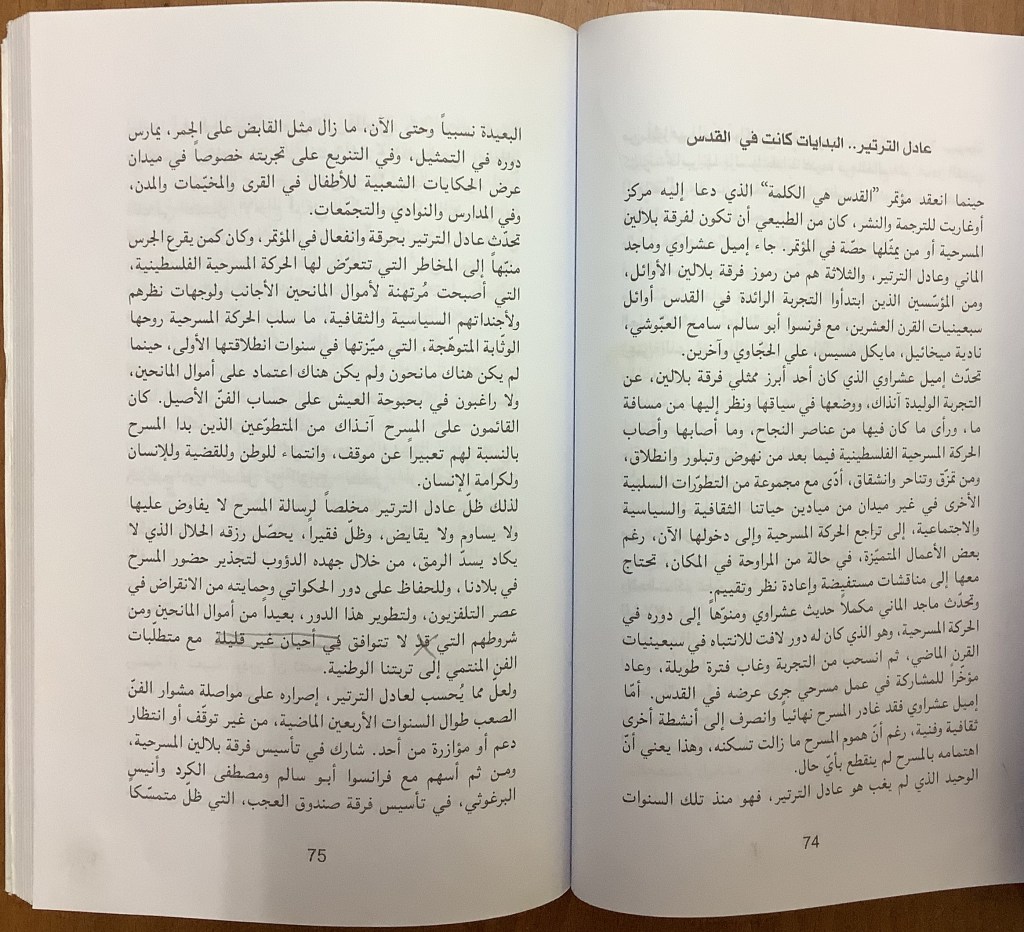 عادل الترتير.. البدايات كانت في القدس
حينما انعقد مؤتمر "القدس هي الكلمة" الذي دعا إليه مركز
أوغاريت للترجمة والنشر، كان من الطبيعي أن تكون لفرقة بلالين
المسرحية أو من يمثّلها حصّة في المؤتمر. جاء إميل عشراوي وماجد
الماني وعادل الترتير، والثلاثة هم من رموز فرقة بلالين الأوائل،
ومن المؤسّسين الذين ابتدأوا التجربة الرائدة في القدس أوائل
سبعينيات القرن العشرين، مع فرنسوا أبو سالم، سامح العبّوشي،
نادية ميخائيل، مايكل مسيس، علي الحجّاوي وآخرين.
تحدّث إميل عشراوي الذي كان أحد أبرز ممثلي فرقة بلالين، عن
التجربة الوليدة آنذاك، ووضعها في سياقها ونظر إليها من مسافة
ما، ورأى ما كان فيها من عناصر النجاح، وما أصابها وأصاب
الحركة المسرحية الفلسطينية فيما بعد من نهوض وتبلور وانطلاق،
ومن تمزّق وتناحر وانشقاق، أدّى مع مجموعة من التطوّرات السلبية
الأخرى في غير ميدان من ميادين حياتنا الثقافية والسياسية
والاجتماعية، إلى تراجع الحركة المسرحية وإلى دخولها الآن، رغم
بعض الأعمال المتميّزة، في حالة من المراوحة في المكان، تحتاج
معها إلى مناقشات مستفيضة وإعادة نظر وتقييم.
وتحدّث ماجد الماني مكملاً حديث عشراوي ومنوّهاً إلى دوره في
الحركة المسرحية، وهو الذي كان له دور لافت للانتباه في سبعينيات
القرن الماضي، ثم انسحب من التجربة وغاب فترة طويلة، وعاد
مؤخّراً للمشاركة في عمل مسرحي جرى عرضه في القدس. أمّا
إميل عشراوي فقد غادر المسرح نهائياً وانصرف إلى أنشطة أخرى
ثقافية وفنية، رغم أنّ هموم المسرح ما زالت تسكنه، وهذا يعني أنّ
اهتمامه بالمسرح لم ينقطع بأيّ حال.
الوحيد الذي لم يغب هو عادل الترتير، فهو منذ تلك السنوات
74
البعيدة نسبياً وحتى الآن، ما زال مثل القابض على الجمر، يمارس
دوره في التمثيل، وفي التنويع على تجربته خصوصاً في ميدان
عرض الحكايات الشعبية للأطفال في القرى والمخيّمات والمدن،
وفي المدارس والنوادي والتجمّعات.
تحدّث عادل الترتير بحرقة وانفعال في المؤتمر، وكان كمن يقرع الجرس
منبّهاً إلى المخاطر التي تتعرّض لها الحركة المسرحية الفلسطينية،
التي أصبحت مُرتهنة لأموال المانحين الأجانب ولوجهات نظرهم
ولأجنداتهم السياسية والثقافية، ما سلب الحركة المسرحية روحها
الوثّابة المتوهّجة، التي ميّزتها في سنوات انطلاقتها الأولى، حينما
لم يكن هناك مانحون ولم يكن هناك اعتماد على أموال المانحين،
ولا راغبون في بحبوحة العيش على حساب الفنّ الأصيل. كان
القائمون على المسرح آنذاك من المتطوّعين الذين بدا المسرح
بالنسبة لهم تعبيراً عن موقف، وانتماء للوطن وللقضية وللإنسان
ولكرامة الإنسان.
لذلك ظلّ عادل الترتير مخلصاً لرسالة المسرح لا يفاوض عليها
ولا يساوم ولا يقايض، وظلّ فقيراً، يحصّل رزقه الحلال الذي لا
يكاد يسدّ الرمق، من خلال جهده الدؤوب لتجذير حضور المسرح
في بلادنا، وللحفاظ على دور الحكواتي وحمايته من الانقراض في
عصر التلفزيون، ولتطوير هذا الدور، بعيداً من أموال المانحين ومن
شروطهم التي قد لا تتوافق في أحيان غير قليلة مع متطلّبات
الفن المنتمي إلى تربتنا الوطنية.
ولعلّ مما يُحسب لعادل الترتير، إصراره على مواصلة مشوار الفنّ
الصعب طوال السنوات الأربعين الماضية، من غير توقّف أو انتظار
دعم أو مؤازرة من أحد. شارك في تأسيس فرقة بلالين المسرحية،
ومن ثم أسهم مع فرانسوا أبو سالم ومصطفى الكرد وأنيس
البرغوثي، في تأسيس فرقة صندوق العجب، التي ظلّ متمسّكاً
75